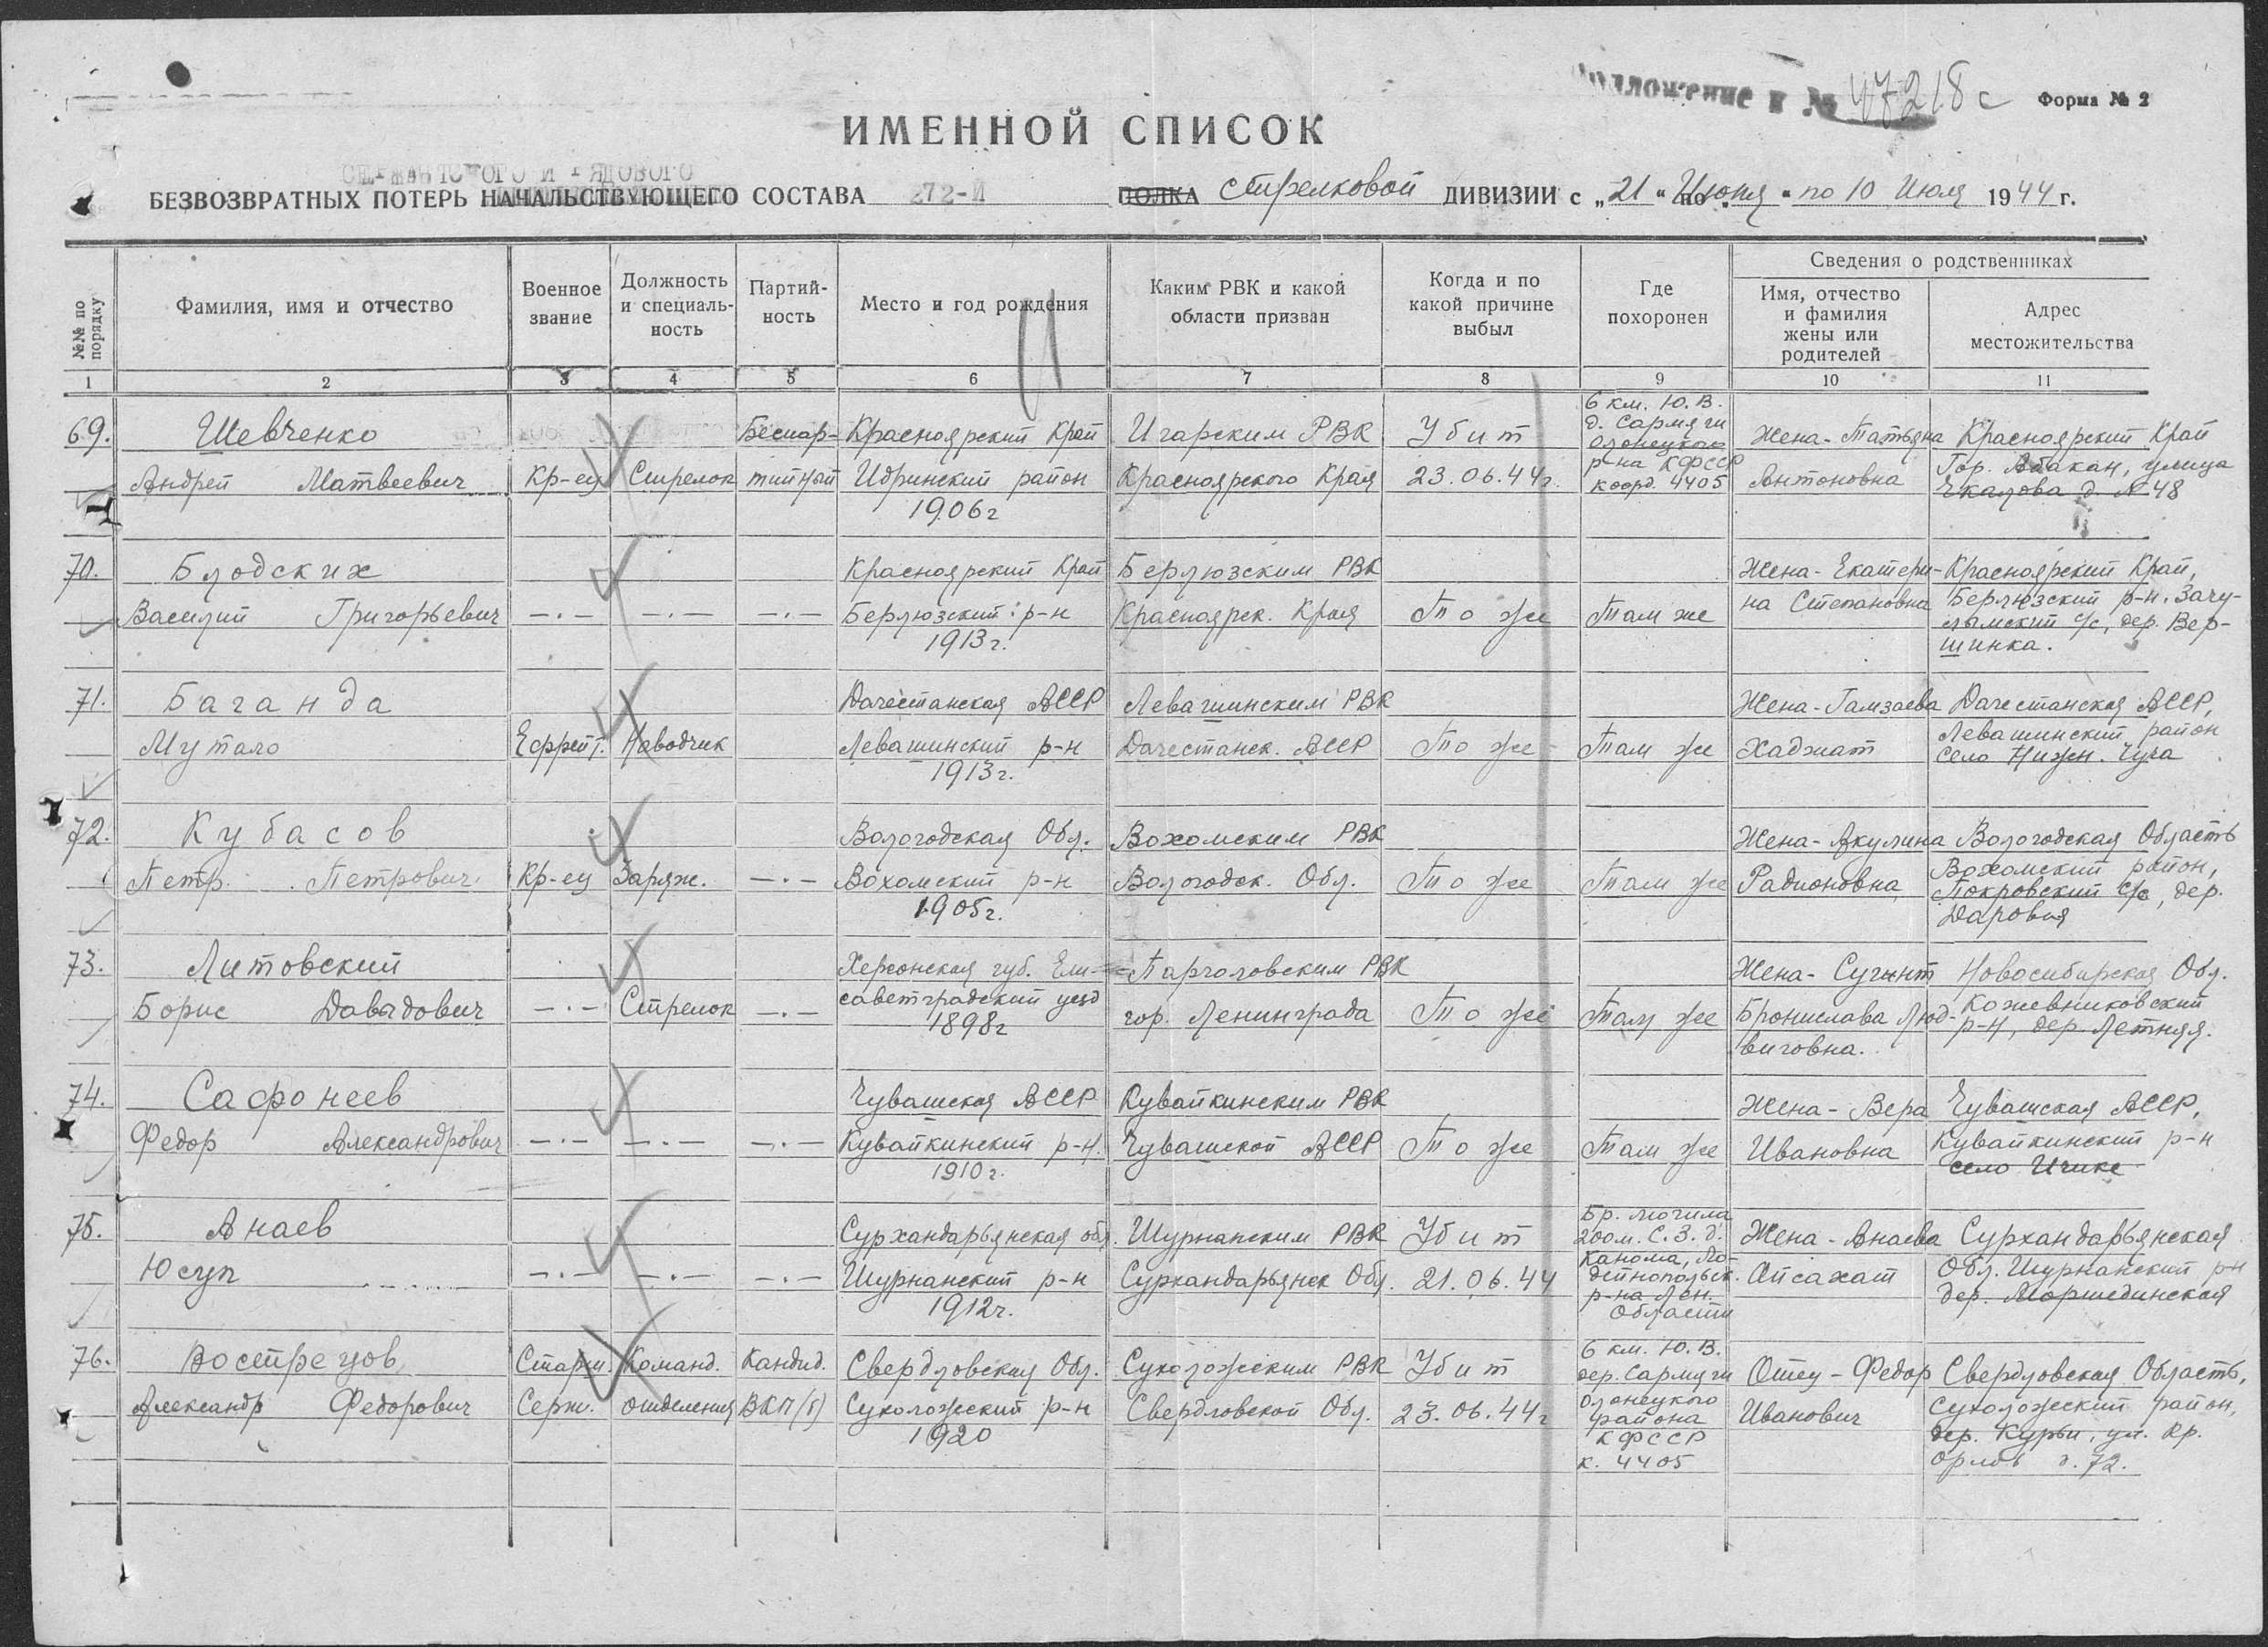 Приложение к № 47218с
Форма № 2
ИМЕННОЙ СПИСОК
СЕРЖАНТСКОГО И РЯДОВОГО
БЕЗВОЗВРАТНЫХ ПОТЕРЬ НАЧАЛЬСТВУЮЩЕГО СОСТАВА 272-Й ПОЛКА стрелковой ДИВИЗИИ с „21“ Июня по 10 Июля 1944 г.
№№ по порядку
Фамилия, имя и отчество
Военное звание
Должность и специаль-ность
Партий-ность
Место и год рождения
Каким РВК и какой области призван
Когда и по какой причине выбыл
Где похоронен
Сведения о родственниках
Имя, отчество и фамилия жены или родителей
Адрес местожительства
1 2 3 4 5 6 7 8 9 10 11
69. Шевченко
Андрей Матвеевич
Кр-ец
Стрелок
Беспар-
тийный
Красноярский Край
Идринский район
1906г
Игарским РВК
Красноярского Края
Убит
23.06.44г.
6 км. Ю.В.
д. Сармяги
Олонецкого
р-на КФССР
коорд. 4405
Жена-Татьяна
Антоновна
Красноярский Край
Гор. Абакан, улица
Чкалова д. № 48
70. Блодских
Василий Григорьевич
—·— —·— —·—
Красноярский Край
Берлюзский р-н
1913г.
Берлюзским РВК
Красноярск. Края
То же
Там же
Жена-Екатери-
на Степановна
Красноярский Край,
Берлюзский р-н. Зачу-
лымский с/с, дер. Вер-
шинка.
71. Баганда
Мутало
Ефрейт.
Наводчик
Дагестанская АССР
Левашинский р-н
1913г.
Левашинским РВК
Дагестанск. АССР
То же
Там же
Жена-Гамзаева
Хаджат
Дагестанская АССР,
Левашинский район
село Нижн. Чуга
72. Кубасов
Петр Петрович
Кр-ец
Заряж.
—·—
Вологодская Обл.
Вохомский р-н
1905г.
Вохомским РВК
Вологодск. Обл.
То же
Там же
Жена-Акулина
Радионовна
Вологодская Область
Вохомский район,
Покровский с/с, дер.
Даровая
73. Литовский
Борис Давыдович
—·—
Стрелок
—·—
Херсонская губ. Ели-
саветградский уезд
1898г
Парголовским РВК
гор. Ленинграда
То же
Там же
Жена-Сугинт
Бронислава Люд-
виговна.
Новосибирская Обл.
Кожевниковский
р-н, дер. Летняя.
74. Сафонеев
Федор Александрович
—·— —·— —·—
Чувашская АССР
Кувайкинский р-н.
1910г.
Кувайкинским РВК
Чувашской АССР
То же
Там же
Жена-Вера
Ивановна
Чувашская АССР,
Кувайкинский р-н
село Ичике
75. Анаев
Юсуп
—·— —·— —·—
Сурхандарьянская обл.
Шурчанский р-н
1912г.
Шурчанским РВК
Сурхандарьянск Обл.
Убит
21.06.44
Бр. могила
200м. С.З. д.
Канома, Ло-
дейнопольск.
р-на Лен.
Области
Жена-Анаева
Айсахат
Сурхандарьянская
Обл. Шурчанский р-н
дер. Моршединская
76. Вострецов
Александр Федорович
Старш.
Серж.
Команд.
отделения
Кандид.
ВКП/б)
Свердловская Обл.
Сухоложский р-н
1920
Сухоложским РВК
Свердловской Обл.
Убит
23.06.44г
6 км. Ю.В.
дер. Сармяги
Олонецкого
района
КФССР
к. 4405
Отец-Федор
Иванович
Свердловская Область,
Сухоложский район,
дер. Курьи, ул. Кр.
Орлов д. 72.